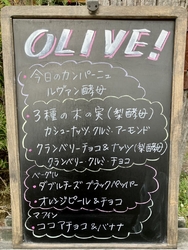 OLIVE!
・今日のカンパーニュ
ルヴァン酵母
・3種の木の実(梨酵母)
カシューナッツ・クルミ・アーモンド
・クランベリーチョコ&ナッツ(梨酵母)
クランベリー・クルミ・チョコ
ベーグル
・ダブルチーズ ブラックペッパー
・オレンジピール&チョコ
マフィン
・ココアチョコ&バナナ